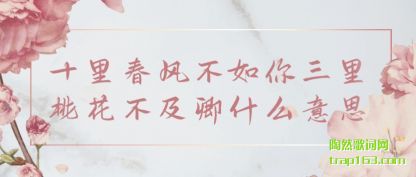 十里春风不如你三里
桃花不及卿什么意思
陶然歌词网
trap163.com